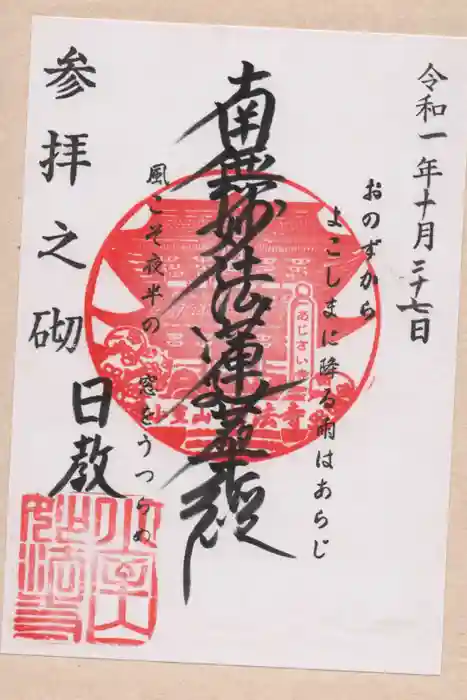 令和一年十月二十七日
おのずから
よこしまに降る雨はあらじ
南無妙法蓮華経
あじさい寺
風こそ夜半の
窓をうつらめ
参拝之砌
日教